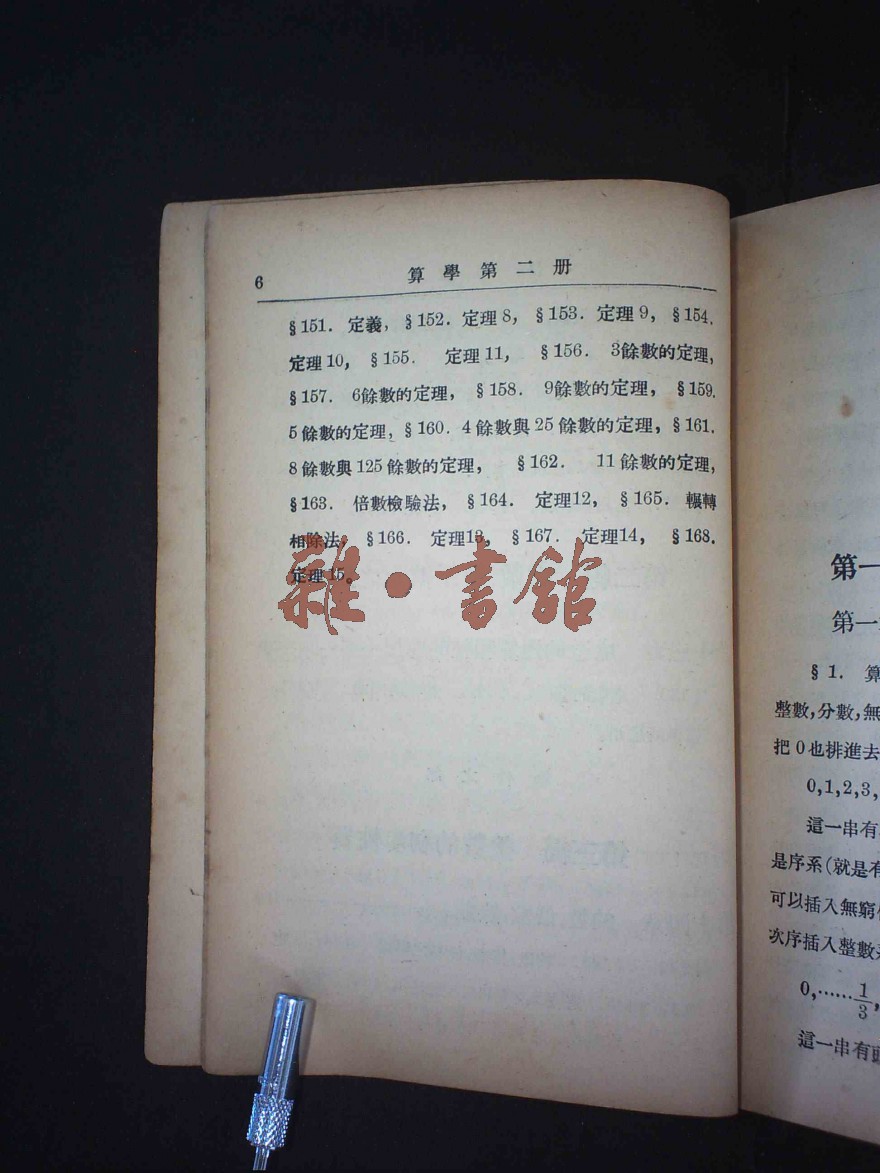 6 算學第二册
§151. 定義, §152. 定理8, §153. 定理9, §154.
定理10, §155. 定理11, §156. 3餘數的定理,
§157. 6餘數的定理, §158. 9餘數的定理, §159.
5餘數的定理, §160. 4餘數與25餘數的定理, §161.
8餘數與125餘數的定理, §162. 11餘數的定理,
§163. 倍數檢驗法, §164. 定理12, §165. 輾轉
相除法, §166. 定理13, §167. 定理14, §168.
定理15。
雜·書館
第一
第一
§1. 算
整數,分數,無
把0也排進去
0,1,2,3,
這一串有
是序系(就是有
可以插入無窮
次序插入整數
0,……1/3,
這一串有頭